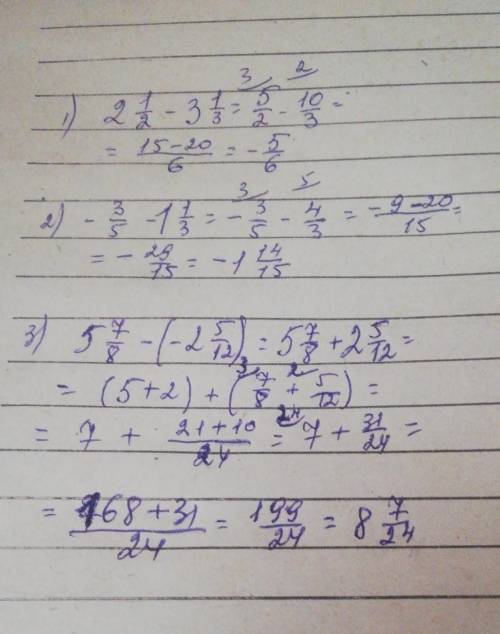 1) 2 1/2 - 3 1/3 = 5/2 (3 - 10/3 (2 =
= (15-20)/6 = - 5/6
2) - 3/5 - 1 1/3 = - 3/5 (3 - 4/3 (5 = (-9-20)/15 =
= - 29/15 = - 1 14/15
3) 5 7/8 - (-2 5/12) = 5 7/8 + 2 5/12 =
= (5+2) + (7/8 (3 + 5/12 (2) =
= 7 + (21+10)/24 = 7 (24 + 31/24 =
= (168+31)/24 = 199/24 = 8 7/24